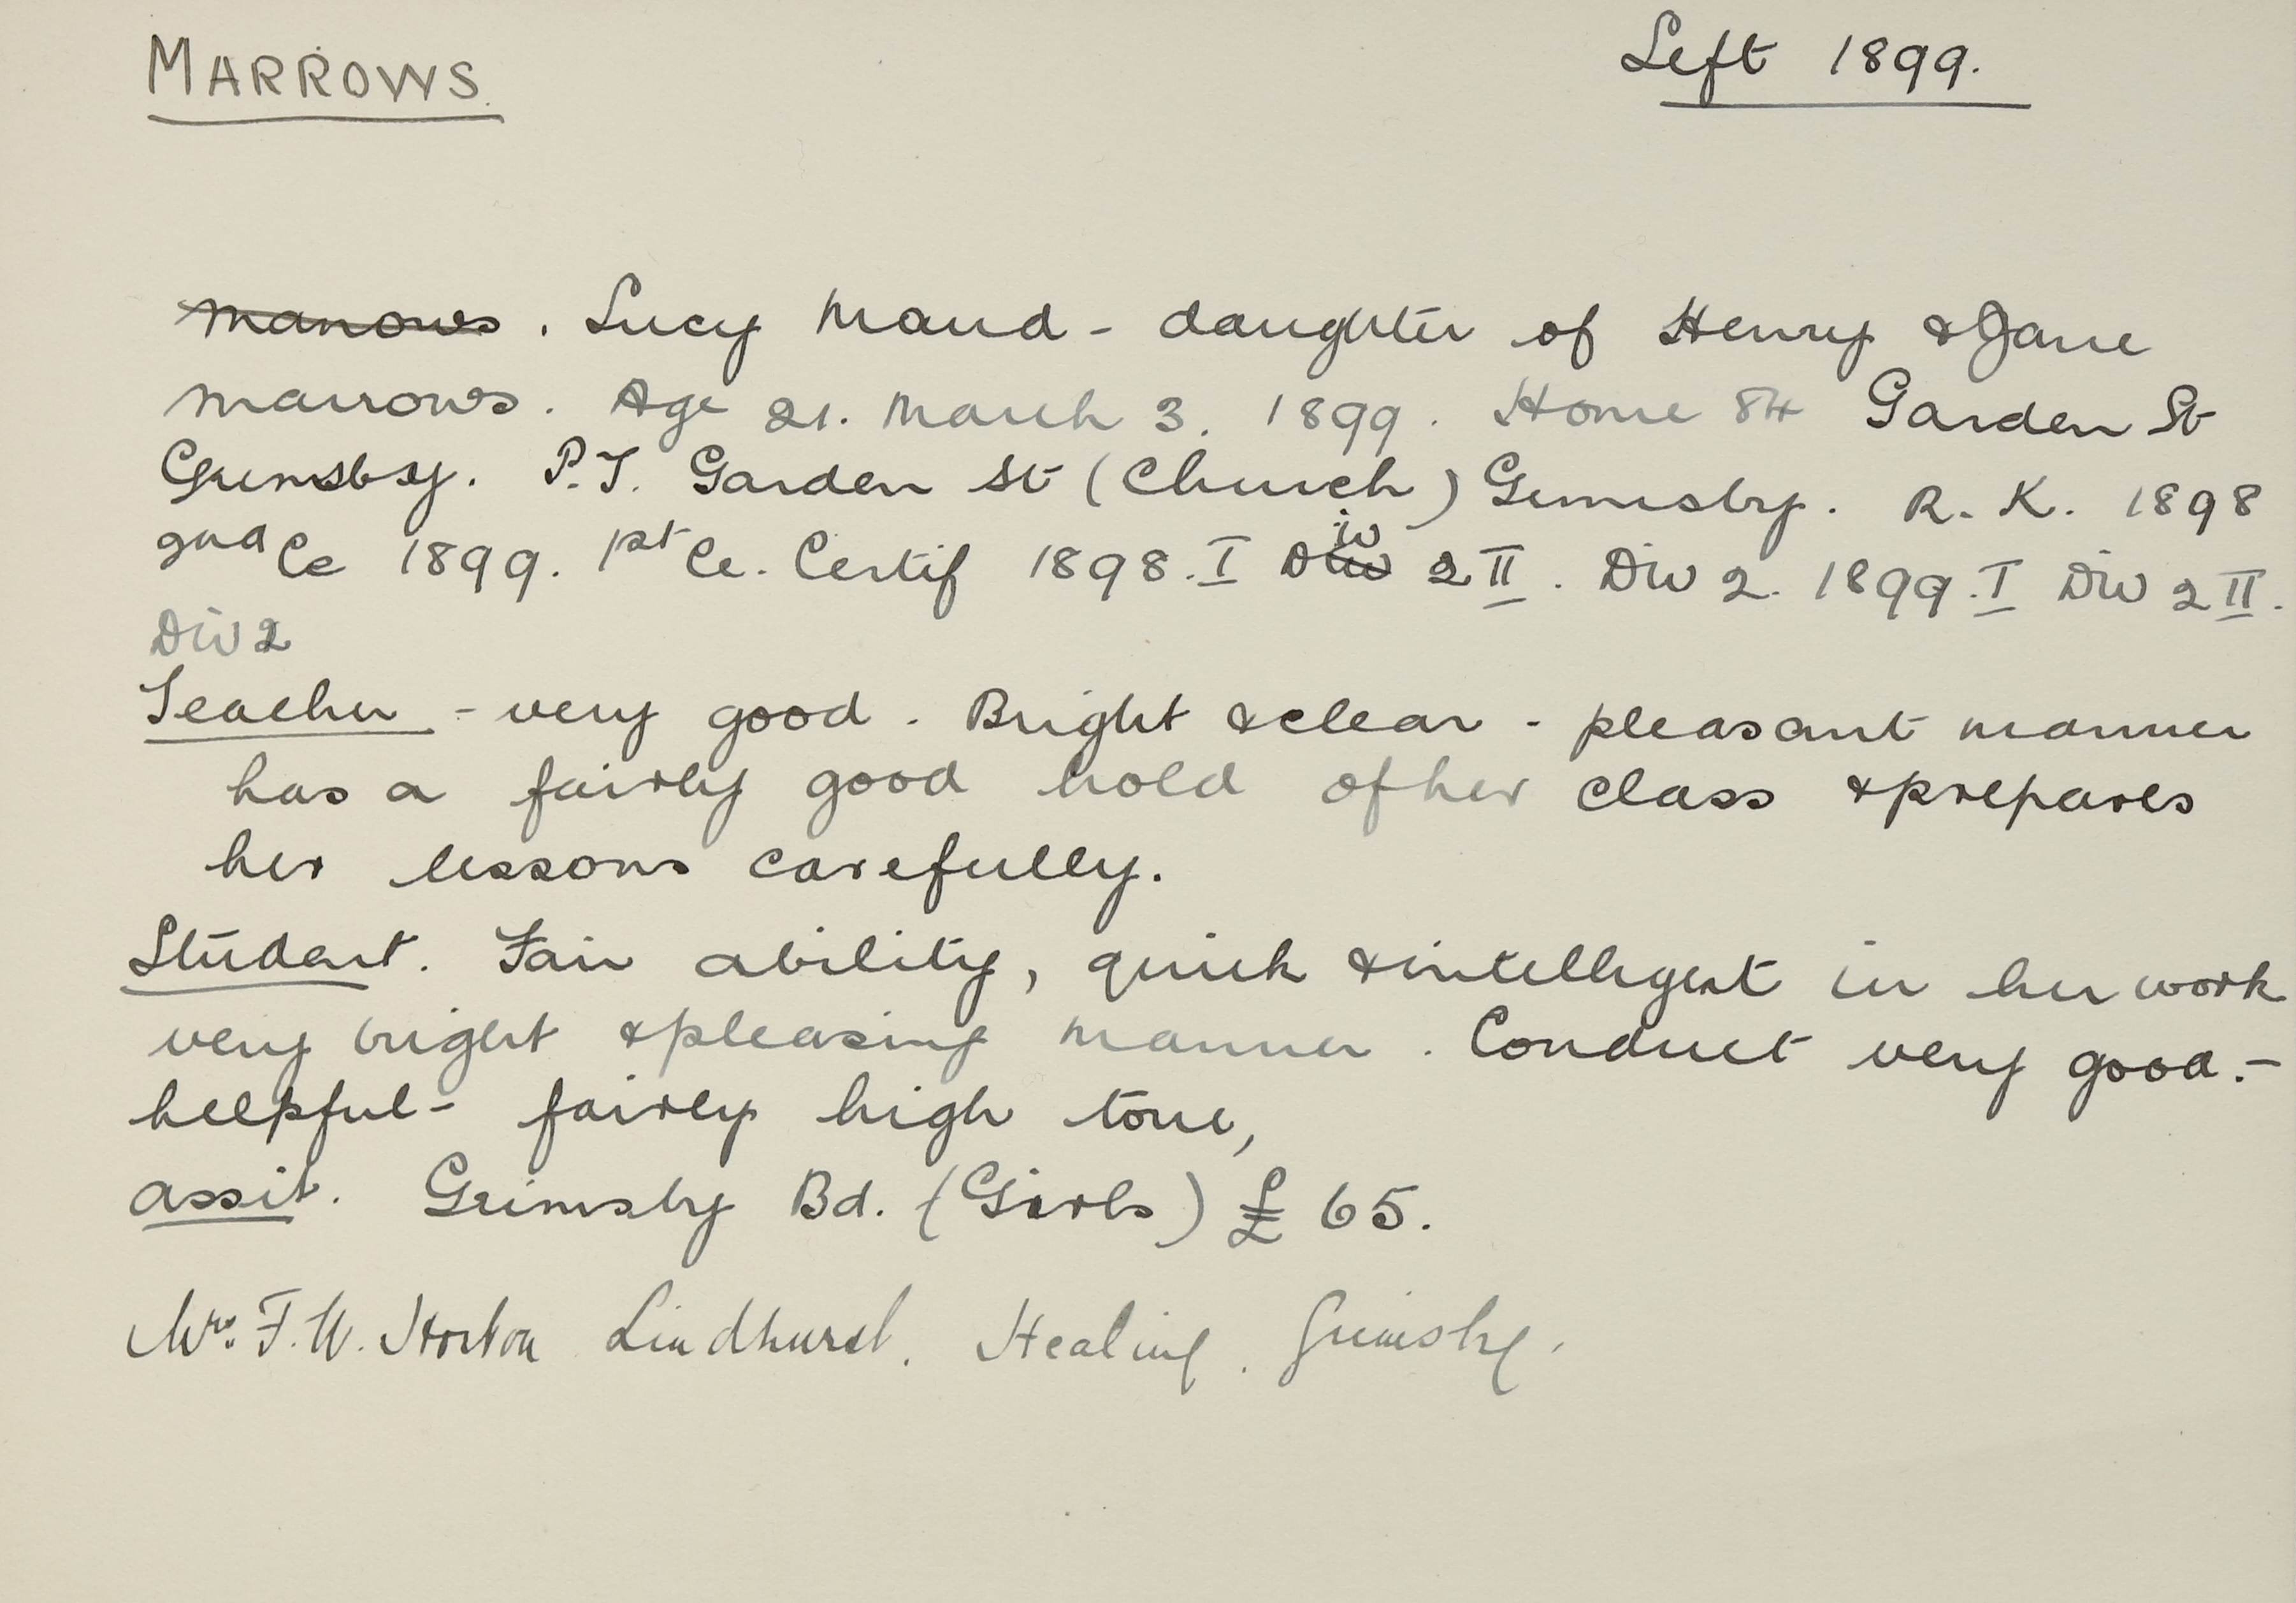 MARROWS. Left 1899.
Marrows. Lucy Maud - daughter of Henry & Jane
Marrows. Age 21. March 3. 1899. Home 84 Garden St
Grimsby. P.T. Garden St (Church) Grimsby. R. K. 1898
2nd Ce 1899. 1st Ce. Certif 1898. I Div 2 II. Div 2. 1899. I Div 2 II.
Div 2
Teacher - very good. Bright & clear - pleasant manner
has a fairly good hold of her class & prepares
her lessons carefully.
Student. Fair ability, quick & intelligent in her work
very bright & pleasing manner. Conduct very good.-
helpful - fairly high tone,
assit. Grimsby Bd. (Girls) £ 65.
Mrs. F. W. Horton Lindhurst. Healing. Grimsby.